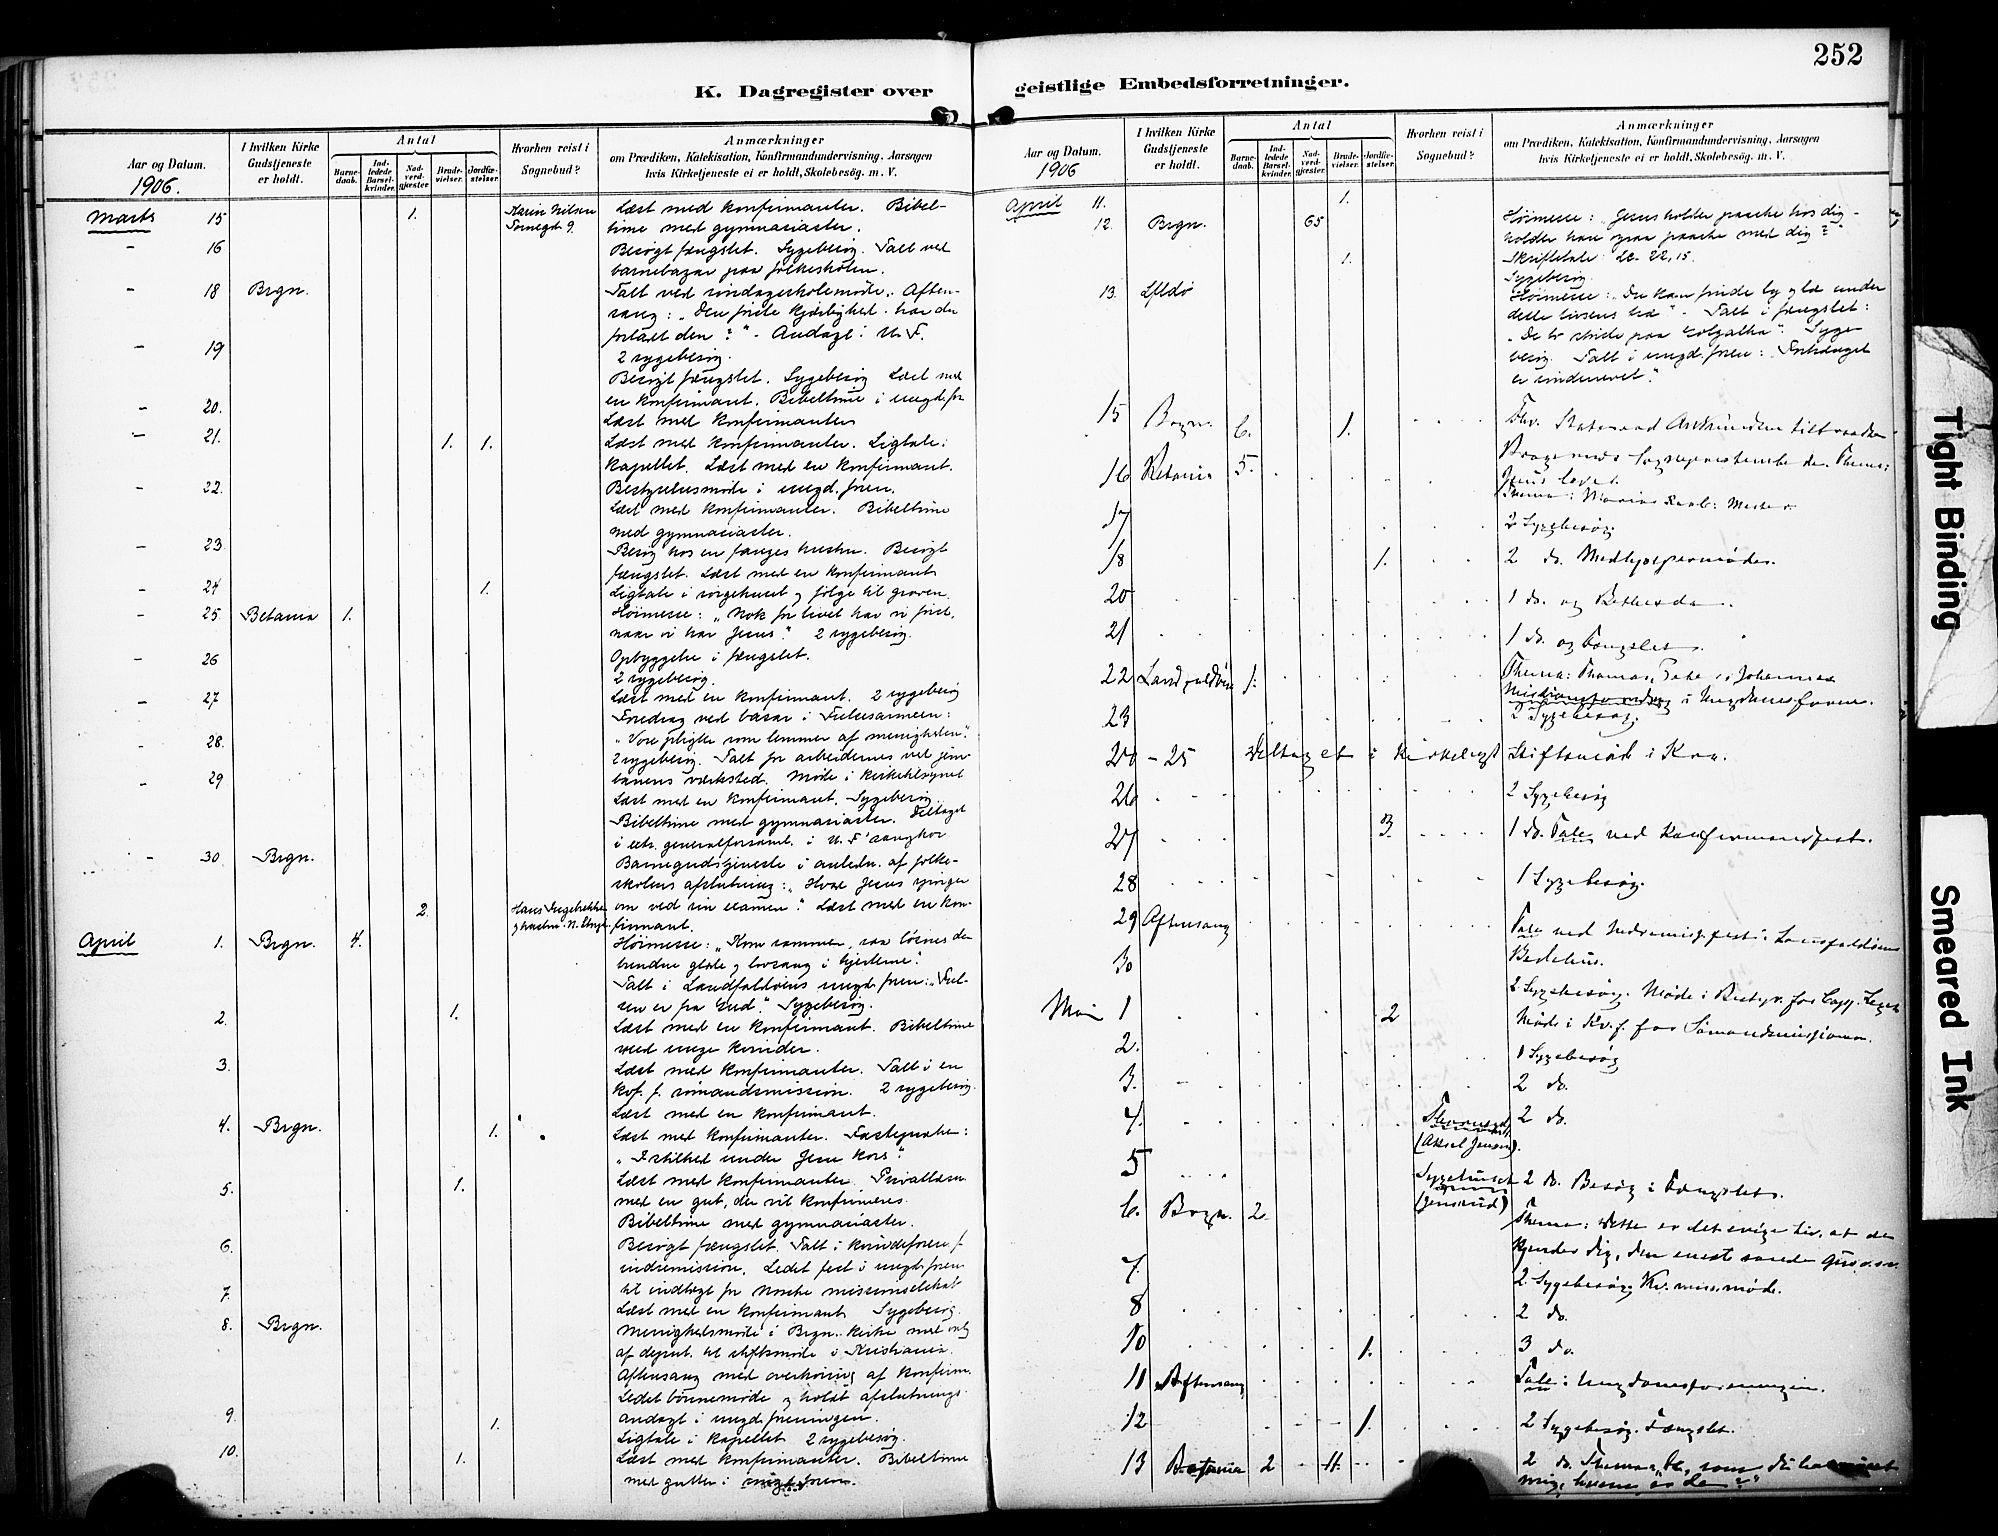 252
K. Dagregister over geistlige Embedsforretninger.
Aar og Datum.
1906.
I hvilken Kirke Gudstjeneste er holdt.
Antal
Barnedaab.
Indledede Barselkvinder.
Nadverdgjæster
Brudevielser.
Jordfæstelser.
Hvorhen reist i Sognebud?
Anmærkninger
om Prædiken, Katekisation, Konfirmandundervisning, Aarsagen
hvis Kirketjeneste ei er holdt, Skolebesøg. m. V.
Marts 15 1. Karen Nilsen Læst med konfirmanter. Bibel-
9. time med gymnasiaster.
" 16 Besøgt fængslet. Sygebesøg. Talt ved
barnebazar paa folkeskolen.
" 18 Brgn. Talt ved søndagsskolemøde. Aften-
sang: "Den første kjærlighed. har du
forladt den?" - Andagt i U. F.
" 19 2 sygebesøg.
Besøgt fængslet. Sygebesøg Læst med
en konfirmant. Bibeltime i ungd. for
" 20. Læst med konfirmanter
" 21. 1. 1. Læst med konfirmanter. Ligtale i
kapellet. Læst med en konfirmant.
Bestyrelsesmøde i ungd. foren.
" 22. Læst med konfirmanter. Bibeltime
med gymnasiaster.
" 23. Besøg hos en fanges hustru. Besøgt
fængslet. Læst med en konfirmant
" 24 1. Ligtale i sørgehuset og følge til graven.
" 25. Betania 1. Høimesse: "Nok for livet har vi først,
naar vi har Jesus." 2 sygebesøg.
" 26 Opbyggelse i fængslet.
2 sygebesøg.
" 27 Læst med en konfirmant. 2 sygebesøg
Foredrag ved basar i Frelsesarmeen:
"Vore pligter som lemmer af menigheden".
" 28. 2 sygebesøg. Talt for arbeiderne ved jern-
banens værksted. Møde i kirketilsynet
" 29 Læst med en konfirmant. Sygebesøg
Bibeltime med gymnasiaster. Deltaget
i extr. generalforsaml. i U. F's sangkor
" 30. Brgn. Barnegudstjeneste i anledn. af folke-
skolens afslutning: "Hvad Jesus spørger
2. Hans om ved sin examen". Læst med en kon-
firmant.
April 1. Brgn. 4. Høimesse: "Kom sammen, saa løsnes den
bundne glæde og lovsang i hjerterne".
Talt i Landfaldøens ungd. foren: "Frel-
sen er fra Gud". Sygebesøg.
2. 1. Læst med en konfirmant. Bibeltime
med unge kvinder.
3. Læst med konfirmanter. Talt i en
kvf. f. sømandsmission. 2 sygebesøg.
Læst med en konfirmant.
4. Brgn. 1. Læst med konfirmanter. Fastepræken:
"I stilhed under Jesu kors".
5. 1. Læst med konfirmanter. Privatlæsn.
med en gut, der vil konfirmeres.
Bibeltime med gymnasiaster.
6. Besøgt fængslet. Talt i kvindeforen. f.
indremission. Ledet fest i ungd. foren
7. til indtægt for norske missionsselskab
Læst med en konfirmant Sygebesøg.
8. Brgn. Menighedsmøde i Brgn. kirke med valg
af deput. til stiftsmøde i Kristiania.
Aftensang med overhøring af konfirm.
Ledet bønnemøde og holdt afslutnings-
9. 1. andagt i ungd. foreningen.
Ligtale i kapellet 2 sygebesøg.
10. 1. Læst med konfirmanter. Bibeltime
med gutter i ungd. foren.
Aar og Datum.
1906
I hvilken Kirke Gudstjeneste er holdt.
Antal
Barnedaab.
Indledede Barselkvinder.
Nadverdgjæster
Brudevielser.
Jordfæstelser.
Hvorhen reist i Sognebud?
Anmærkninger
om Prædiken, Katekisation, Konfirmandundervisning, Aarsagen
hvis Kirketjeneste ei er holdt, Skolebesøg. m. V.
April 11. 1.
12. Brgn. 65 Høimesse: "Jesus holder paaske hos dig -
holder han ogsaa paaske med dig?"
1. Skriftetale: Lc. 22,15.
Sygebesøg.
13. Lfldø Høimesse: "Du kan finde ly og læ under
dette korsens træ". - Talt i fængslet:
"De to stride paa Golgatha". Syge-
besøg. Talt i ungd. foren:
er underrevet".
15 Brgn. 6. 1. Fhv. Statsraad tiltraadte
Bragernes Sognepræstembede. Thema:
Jesus lever.
16 Betania 5. Thema: Marias Raab: Mester
17 2 Sygebesøg
18 1. 2 do. Medhjælpermøde.
20 1 do. og Bethesda.
21 1 do. og Fængslet.
22 Landfaldøen 1. Thema: Thomas, Peter og Johannes
i Ungdomsforen.
23 2 Sygebesøg.
20 - 25 Deltaget i kirkeligt Stiftsmøde i Kra.
26 2 Sygebesøg
27 3. 1 do. Tale ved Konfirmandfest.
28 1 Sygebesøg.
29 Aftensang Tale ved Indremisj.fest i Landfaldøens
30 Bedehus.
2 Sygebesøg. Møde i Bestyr. for Legat
Mai 1 2 Møde i Kv.f. for Sømandsmissionen.
2. 1 Sygebesøg
3. 2 do.
4. (Aksel Jensen). 2 do.
5 Sygehuset 2 do. Besøg i Fængslet.
6. Brgn. 2. Thema: Dette er det evige liv, at de
kjender dig, den eneste sande Gud o.s.v.
7. 2 Sygebesøg, Kv. miss. møde.
8 2 do.
10 1. 3 do.
11 Aftensang Tale i Ungdomsforeningen.
12 1. 2 Sygebesøg. Fængslet.
13 Betania 2 11. 2 do. Thema: som du har
mig,
Tight Binding
Smeared Ink